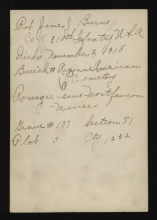 Pvt James J Burns
Co K 310th Infantry U.S.A
Died November 3, 1918
Buried # Argonne American
Cemetery
Romagne-sous-Montfaucon
Meuse
Grave # 137 Section 71
Plot 3 Cty 1232